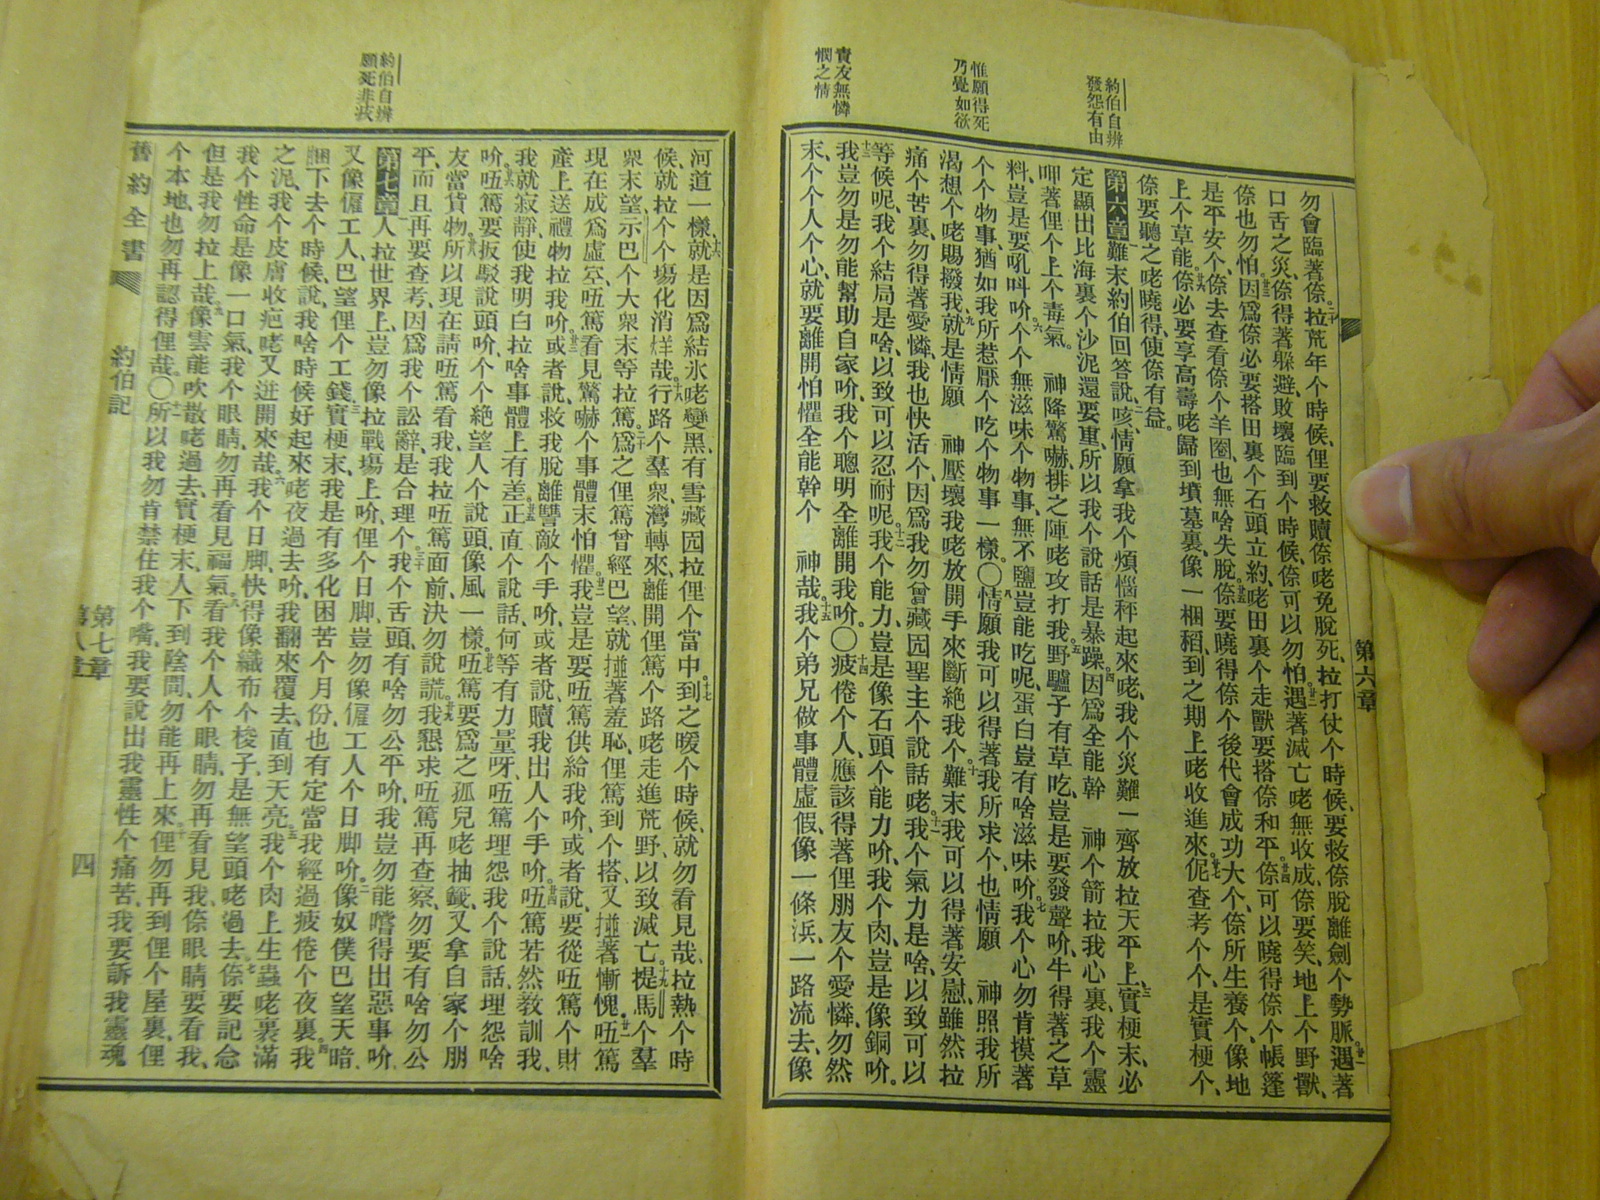 約伯自辨
發怨有由
惟願得死
乃覺如欲
責友無憐
憫之情
第六章
勿會臨著㑚、拉荒年个時候、俚要救贖㑚咾免脫死、拉打仗个時候、要救㑚脫離劍个勢脈。遇著
口舌之災、㑚得著躲避、敗壞臨到个時候、㑚可以勿怕。遇著滅亡咾無收成、㑚要笑、地上个野獸、
㑚也勿怕。因爲㑚必要搭田裏个石頭立約、咾田裏个走獸要搭㑚和平。㑚可以曉得㑚个帳篷
是平安个、㑚去查看㑚个羊圈、也無啥失脫。㑚要曉得㑚个後代會成功大个、㑚所生養个、像地
上个草能。㑚必要享高壽咾歸到墳墓裏、像一梱稻、到之期上咾收進來。伲查考个个、是實梗个、
㑚要聽之咾曉得、使㑚有益。
第六章難末約伯回答說、咳、情願拿我个煩惱秤起來咾、我个災難一齊放拉天平上、實梗末、必
定顯出比海裏个沙泥還要重、所以我个說話是暴躁。因爲全能幹 神个箭拉我心裏、我个靈
呷著俚个上个毒氣。 神降驚嚇、排之陣咾攻打我。野驢子有草吃、豈是要發聲吤、牛得著之草
料、豈是要吼叫吤。个个無滋味个物事、無不鹽、豈能吃呢、蛋白豈有啥滋味吤。我个心勿肯摸著
个个物事、猶如我所惹厭个吃个物事一樣。〇情願我可以得著我所求个、也情願 神照我所
渴想个咾賜撥我。就是情願 神壓壞我咾放開手來斷絕我个。難末我可以得著安慰、雖然拉
痛个苦裏、勿得著愛憐、我也快活个、因爲我勿曾藏囥聖主个說話咾。我个氣力是啥、以致可以
等候呢、我个結局是啥、以致可以忍耐呢。我个能力、豈是像石頭个能力吤、我个肉、豈是像銅吤。
我豈勿是勿能幫助自家吤、我个聰明全離開我吤。〇疲倦个人、應該得著俚朋友个愛憐、勿然
末、个个人个心、就要離開怕懼全能幹个 神哉。我个弟兄做事體虛假、像一條浜、一路流去、像
約伯自辨
願死非妄
河道一樣、就是因爲結氷咾變黑、有雪藏囥拉俚个當中。到之暖个時候、就勿看見哉、拉熱个時
候、就拉个个塲化消烊哉。行路个羣衆、灣轉來離開俚篤个路咾走進荒野、以致滅亡。提馬个羣
衆末望、示巴个大衆末等拉。篤爲之俚篤曾經巴望、就𢱟著羞恥、俚篤到个搭、又𢱟著慚愧。㕶篤
現在成爲虛空、㕶篤看見驚嚇个事體末怕懼。我豈是要㕶篤供給我吤、或者說、要從㕶篤个財
產上送禮物拉我吤。或者說、救我脫離讐敵个手吤、或者說、贖我出人个手吤。㕶篤若然教訓我、
我就寂靜、使我明白拉啥事體上有差。正直个說話、何等有力量呀、㕶篤埋怨我个說話、埋怨啥
吤。㕶篤要扳駁說頭吤、个个絕望人个說頭像風一樣。㕶篤要爲之孤兒咾抽籤、又拿自家个朋
友當貨物。所以現在請㕶篤看我、我拉㕶篤面前、決勿說謊。我懇求㕶篤再查察、勿要有啥勿公
平、而且再要查考、因爲我个訟辭、是合理个。我个舌頭、有啥勿公平吤、我豈勿能嚐得出惡事吤。
第七章人拉世界上、豈勿像拉戰塲上吤、俚个日脚、豈勿像僱工人个日脚吤。像奴僕巴望天暗、
又像僱工人、巴望俚个工錢。實梗末、我是有多化困苦个月份、也有定當我經過疲倦个夜裏。我
睏下去个時候、說、我啥時候好起來咾夜過去吤、我翻來覆去、直到天亮。我个肉上生蟲咾裏滿
之泥、我个皮膚收疤咾又迸開來哉。我个日脚、快得像織布个梭子、是無望頭咾過去。㑚要記念
我个性命是像一口氣、我个眼睛、勿再看見福氣。看我个人个眼睛、勿再看見我、㑚眼睛要看我、
但是我勿拉上哉。像雲能吹散咾過去、實梗末、人下到陰間、勿能再上來。俚勿再到俚个屋裏、俚
个本地也勿再認得俚哉。〇所以我勿肯禁住我个嘴、我要說出我靈性个痛苦、我要訴我靈魂
舊約全書
約伯記
第七章
第八章
四